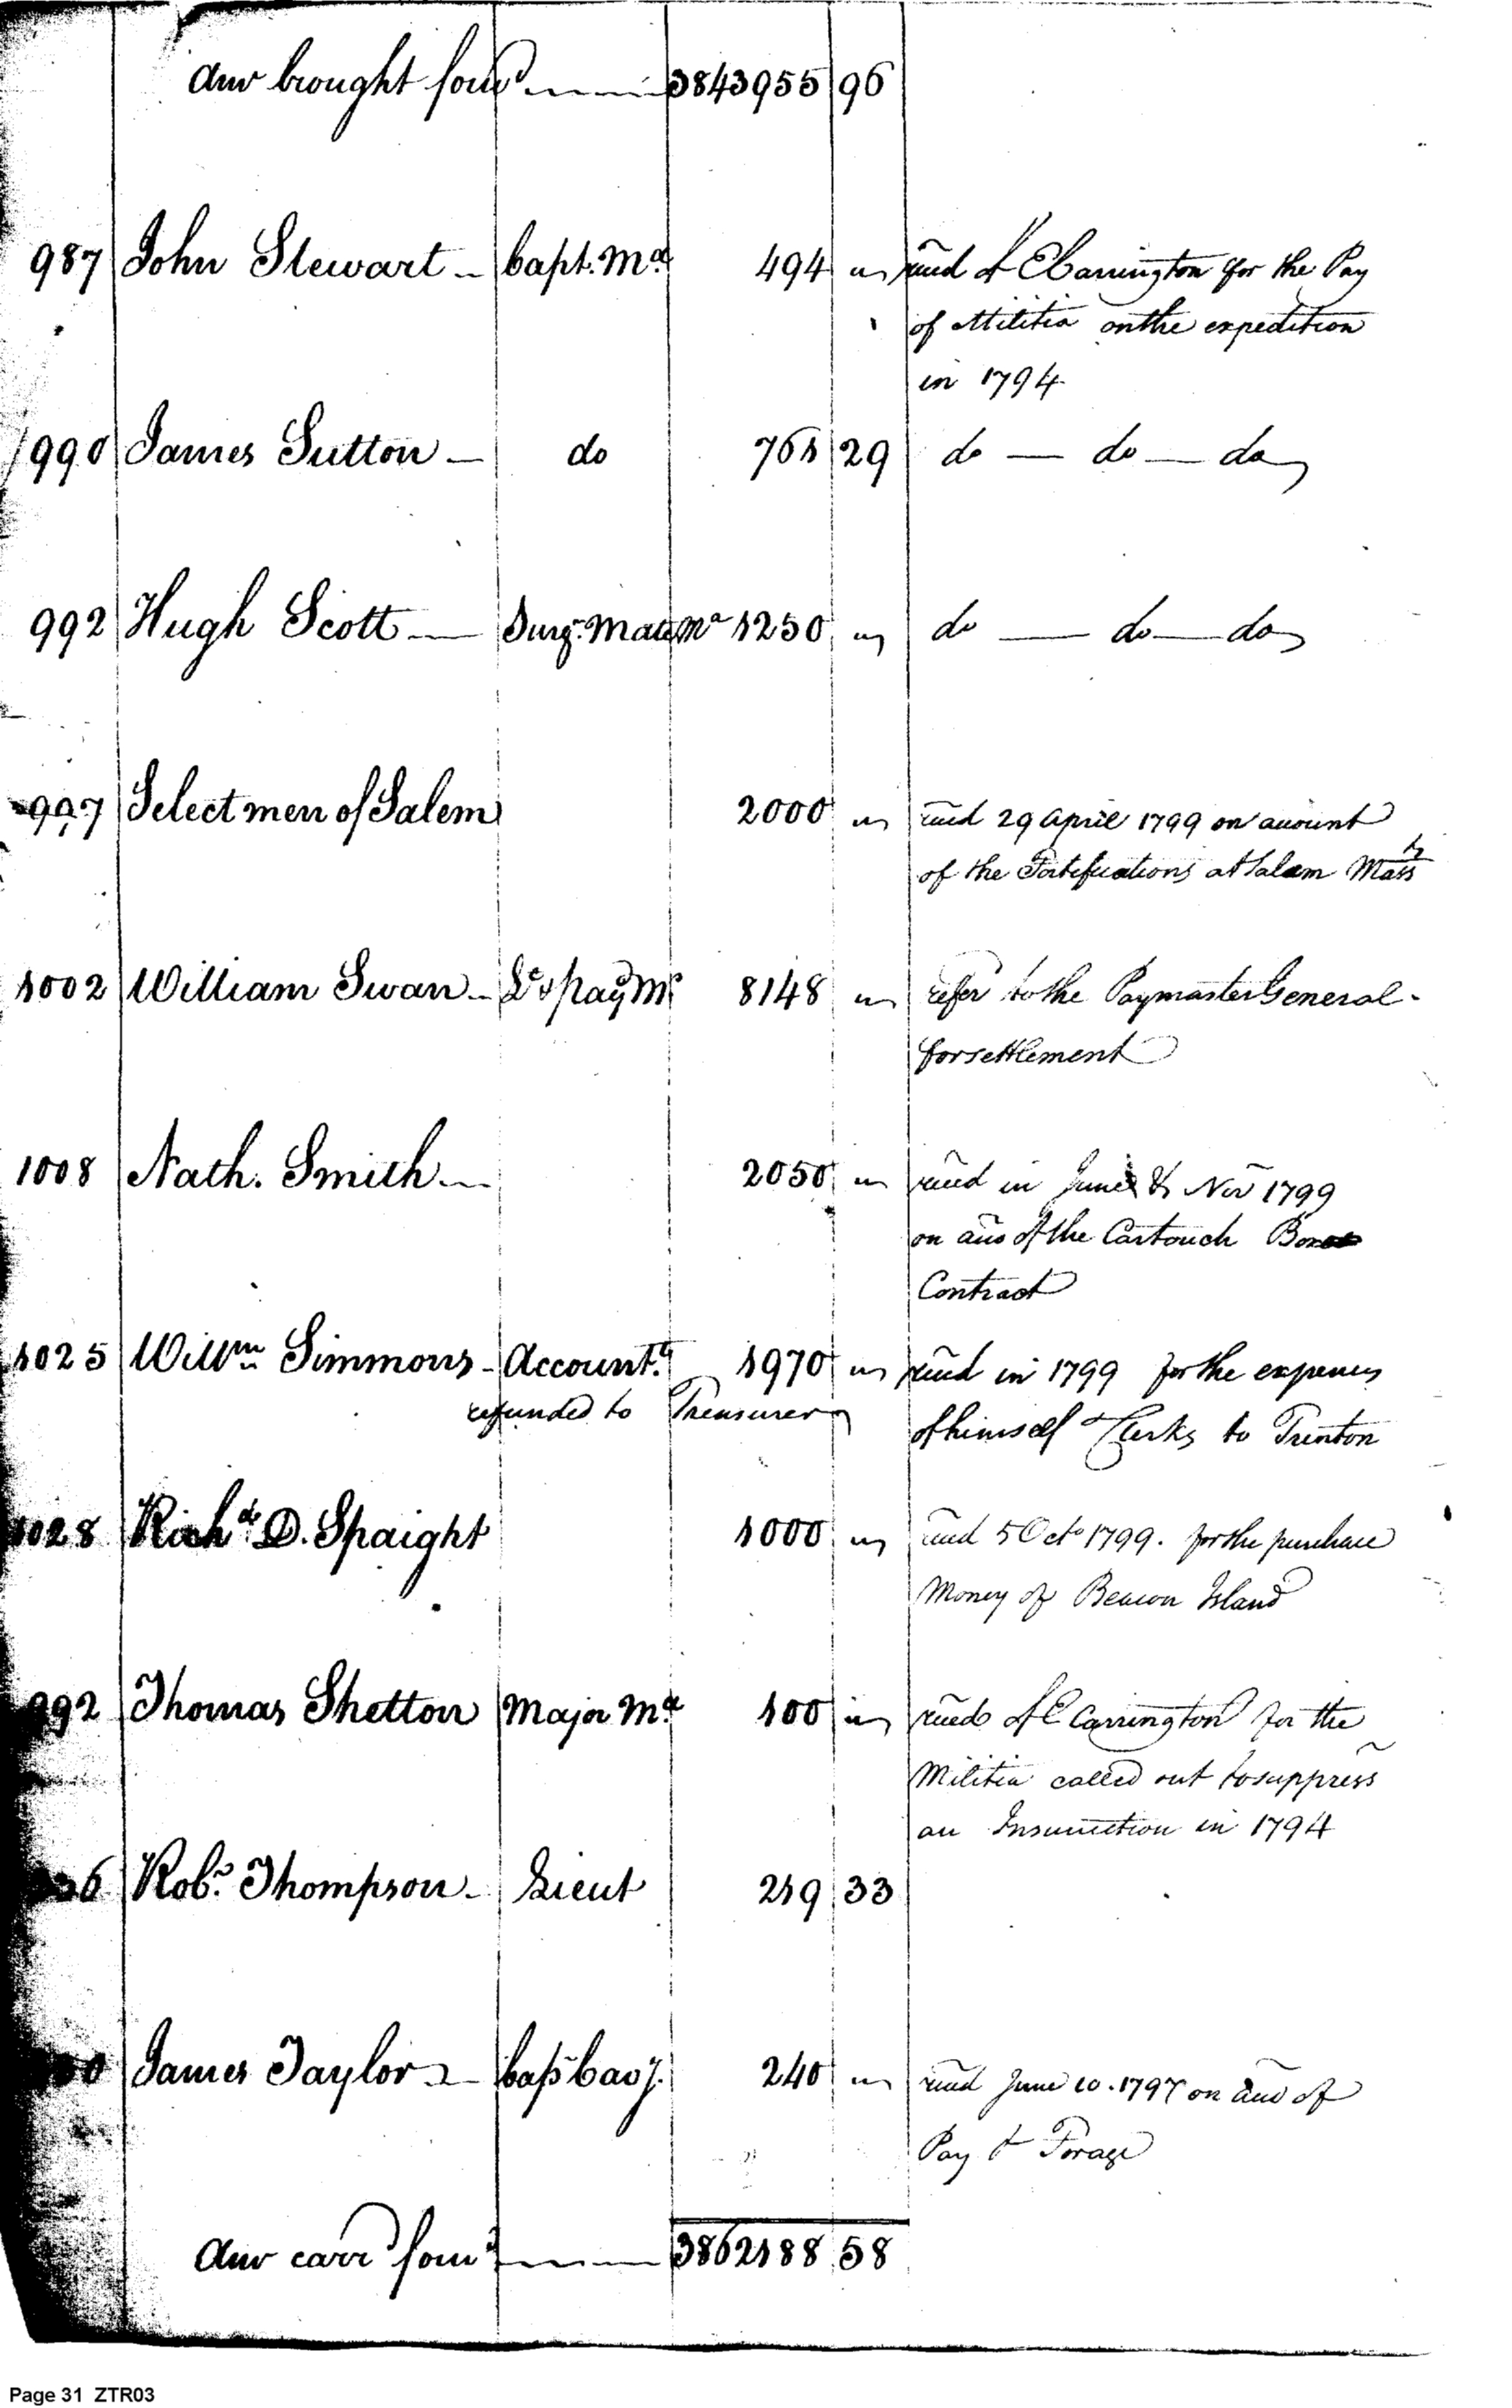 Amo brought forwd 3843955 96
987 John Stewart Capt. Ma 494 " recd of E Carrington for the Pay
of Militia on the expedition
in 1794
990 James Sutton do 761 29 do do do
992 Hugh Scott Surg. Mate Ma 1250 " do do do
997 Select men of Salem 2000 " recd 29 April 1799 on account
of the Fortifications at Salem Mass
1002 William Swan 8148 " refer to the Paymaster General
for settlement
1008 Nath. Smith 2050 " recd in June & Nov 1799
on acco of the Cartouch Boxes
Contract
1025 Willm Simmons Accountt 1970 " recd in 1799 for the expences
refunded to Treasurer
of himself & Clerks to Trenton
1028 Richd D. Spaight 1000 " recd 5 Octo 1799. for the purchase
Money of Beacon Island
992 Thomas Shelton Major Ma 100 " recd of E Carrington for the
Militia called out to suppress
an Insurrection in 1794
6 Robt Thompson Lieut 219 33
James Taylor Capt Cavy. 240 " recd June 10. 1797 on acco of
Pay & Forage
Amo carrd forwd 3862188 58
Page 31 ZTR03